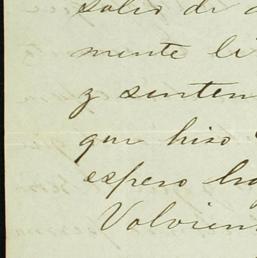 salio di
mente li
y senten
que hiso
espero ha
Volvien